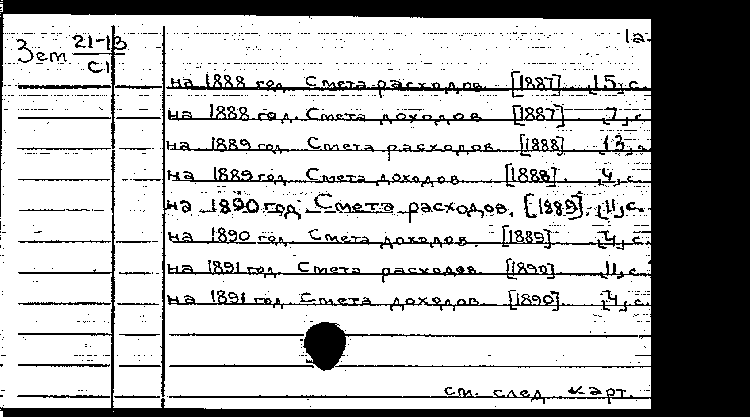 1а.
Зем 21-13
С1
на 1888 год. Смета расходов. [1887]. 15, с.
на 1888 год. Смета доходов [1887] 7, с.
на 1889 год. Смета расходов. [1888] 13, с.
на 1889 год. Смета доходов. [1888] 4, с.
на 1890 год. Смета расходов. [1889]. 11, с.
на 1890 год. Смета доходов. [1889] 4, с.
на 1891 год. Смета расходов. [1890] 11, с.
на 1891 год. Смета доходов. [1890]. 4, с.
см. след карт.